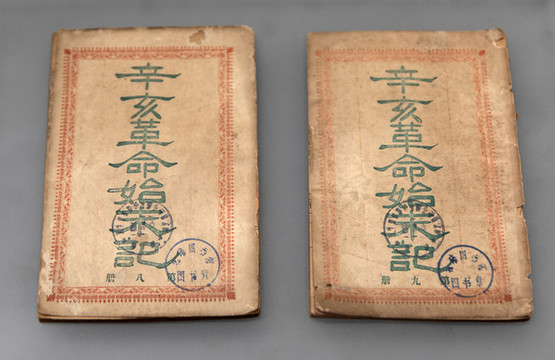 辛亥革命始末記
第八册
辛亥革命始末記
第九册